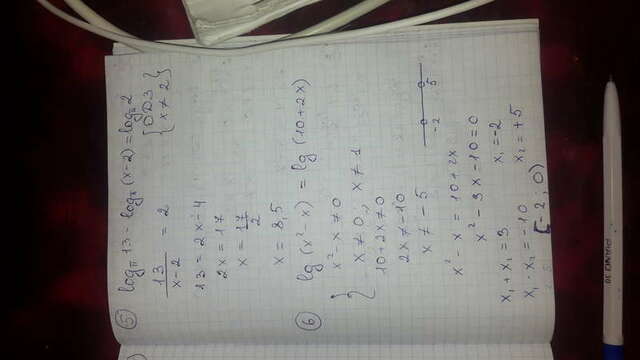 ⑤ log_π 13 - log_π (x-2) = log_π 2
13/(x-2) = 2
{ ОДЗ
x ≠ 2 }
13 = 2x - 4
2x = 17
x = 17/2
x = 8,5
⑥ lg (x² - x) = lg (10+2x)
{ x² - x ≠ 0
x ≠ 0, x ≠ 1
10 + 2x ≠ 0
2x ≠ -10
x ≠ -5
-2 5
x² - x = 10 + 2x
x² - 3x - 10 = 0
x₁ + x₂ = 3 x₁ = -2
x₁ · x₂ = -10 x₂ = +5
[-2; 0)